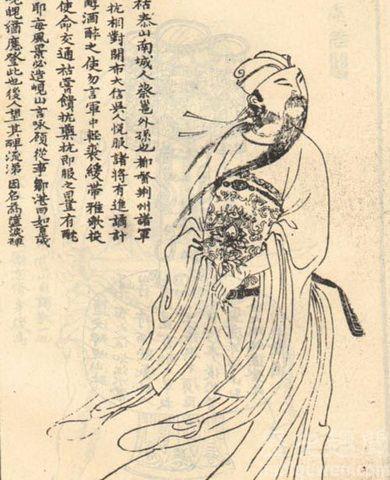 祜泰山南城人蔡邕外孫也都督荊州諸軍
抗相對開布大信吳人悅服諸將有進譎計
醇酒醉之使勿言軍中輕裘緩帶雅歌投
使命交通祜嘗饋抗藥抗即服之豈有酖
耶每風景必造峴山言咏顧從事鄒湛曰如歲
魂魄猶應登此也後人望其碑流涕因名為墮淚碑